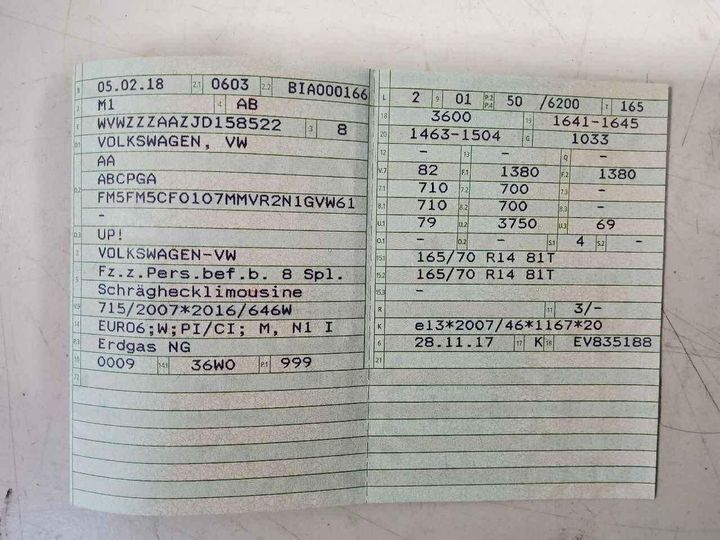 B 05.02.18 2.1 0603 2.2 BIA000166
J M1 4 AB
E WVWZZZAAZJD158522 3 8
D.1 VOLKSWAGEN, VW
AA
D.2 ABCPGA
FM5FM5CF0107MMVR2N1GVW61
-
D.3 UP!
2 VOLKSWAGEN-VW
5 Fz.z.Pers.bef.b. 8 Spl.
Schräghecklimousine
V.9 715/2007*2016/646W
14 EURO6;W;PI/CI; M, N1 I
P.3 Erdgas NG
10 0009 14.1 36W0 P.1 999
22
L 2 9 01 P.2 P.4 50 /6200 T 165
18 3600 19 1641-1645
20 1463-1504 G 1033
12 - 13 - Q -
V.7 82 F.1 1380 F.2 1380
7.1 710 7.2 700 7.3 -
8.1 710 8.2 700 8.3 -
U.1 79 U.2 3750 U.3 69
O.1 - O.2 - S.1 4 S.2 -
15.1 165/70 R14 81T
15.2 165/70 R14 81T
15.3 -
R 11 3/-
K e13*2007/46*1167*20
6 28.11.17 17 K 16 EV835188
21